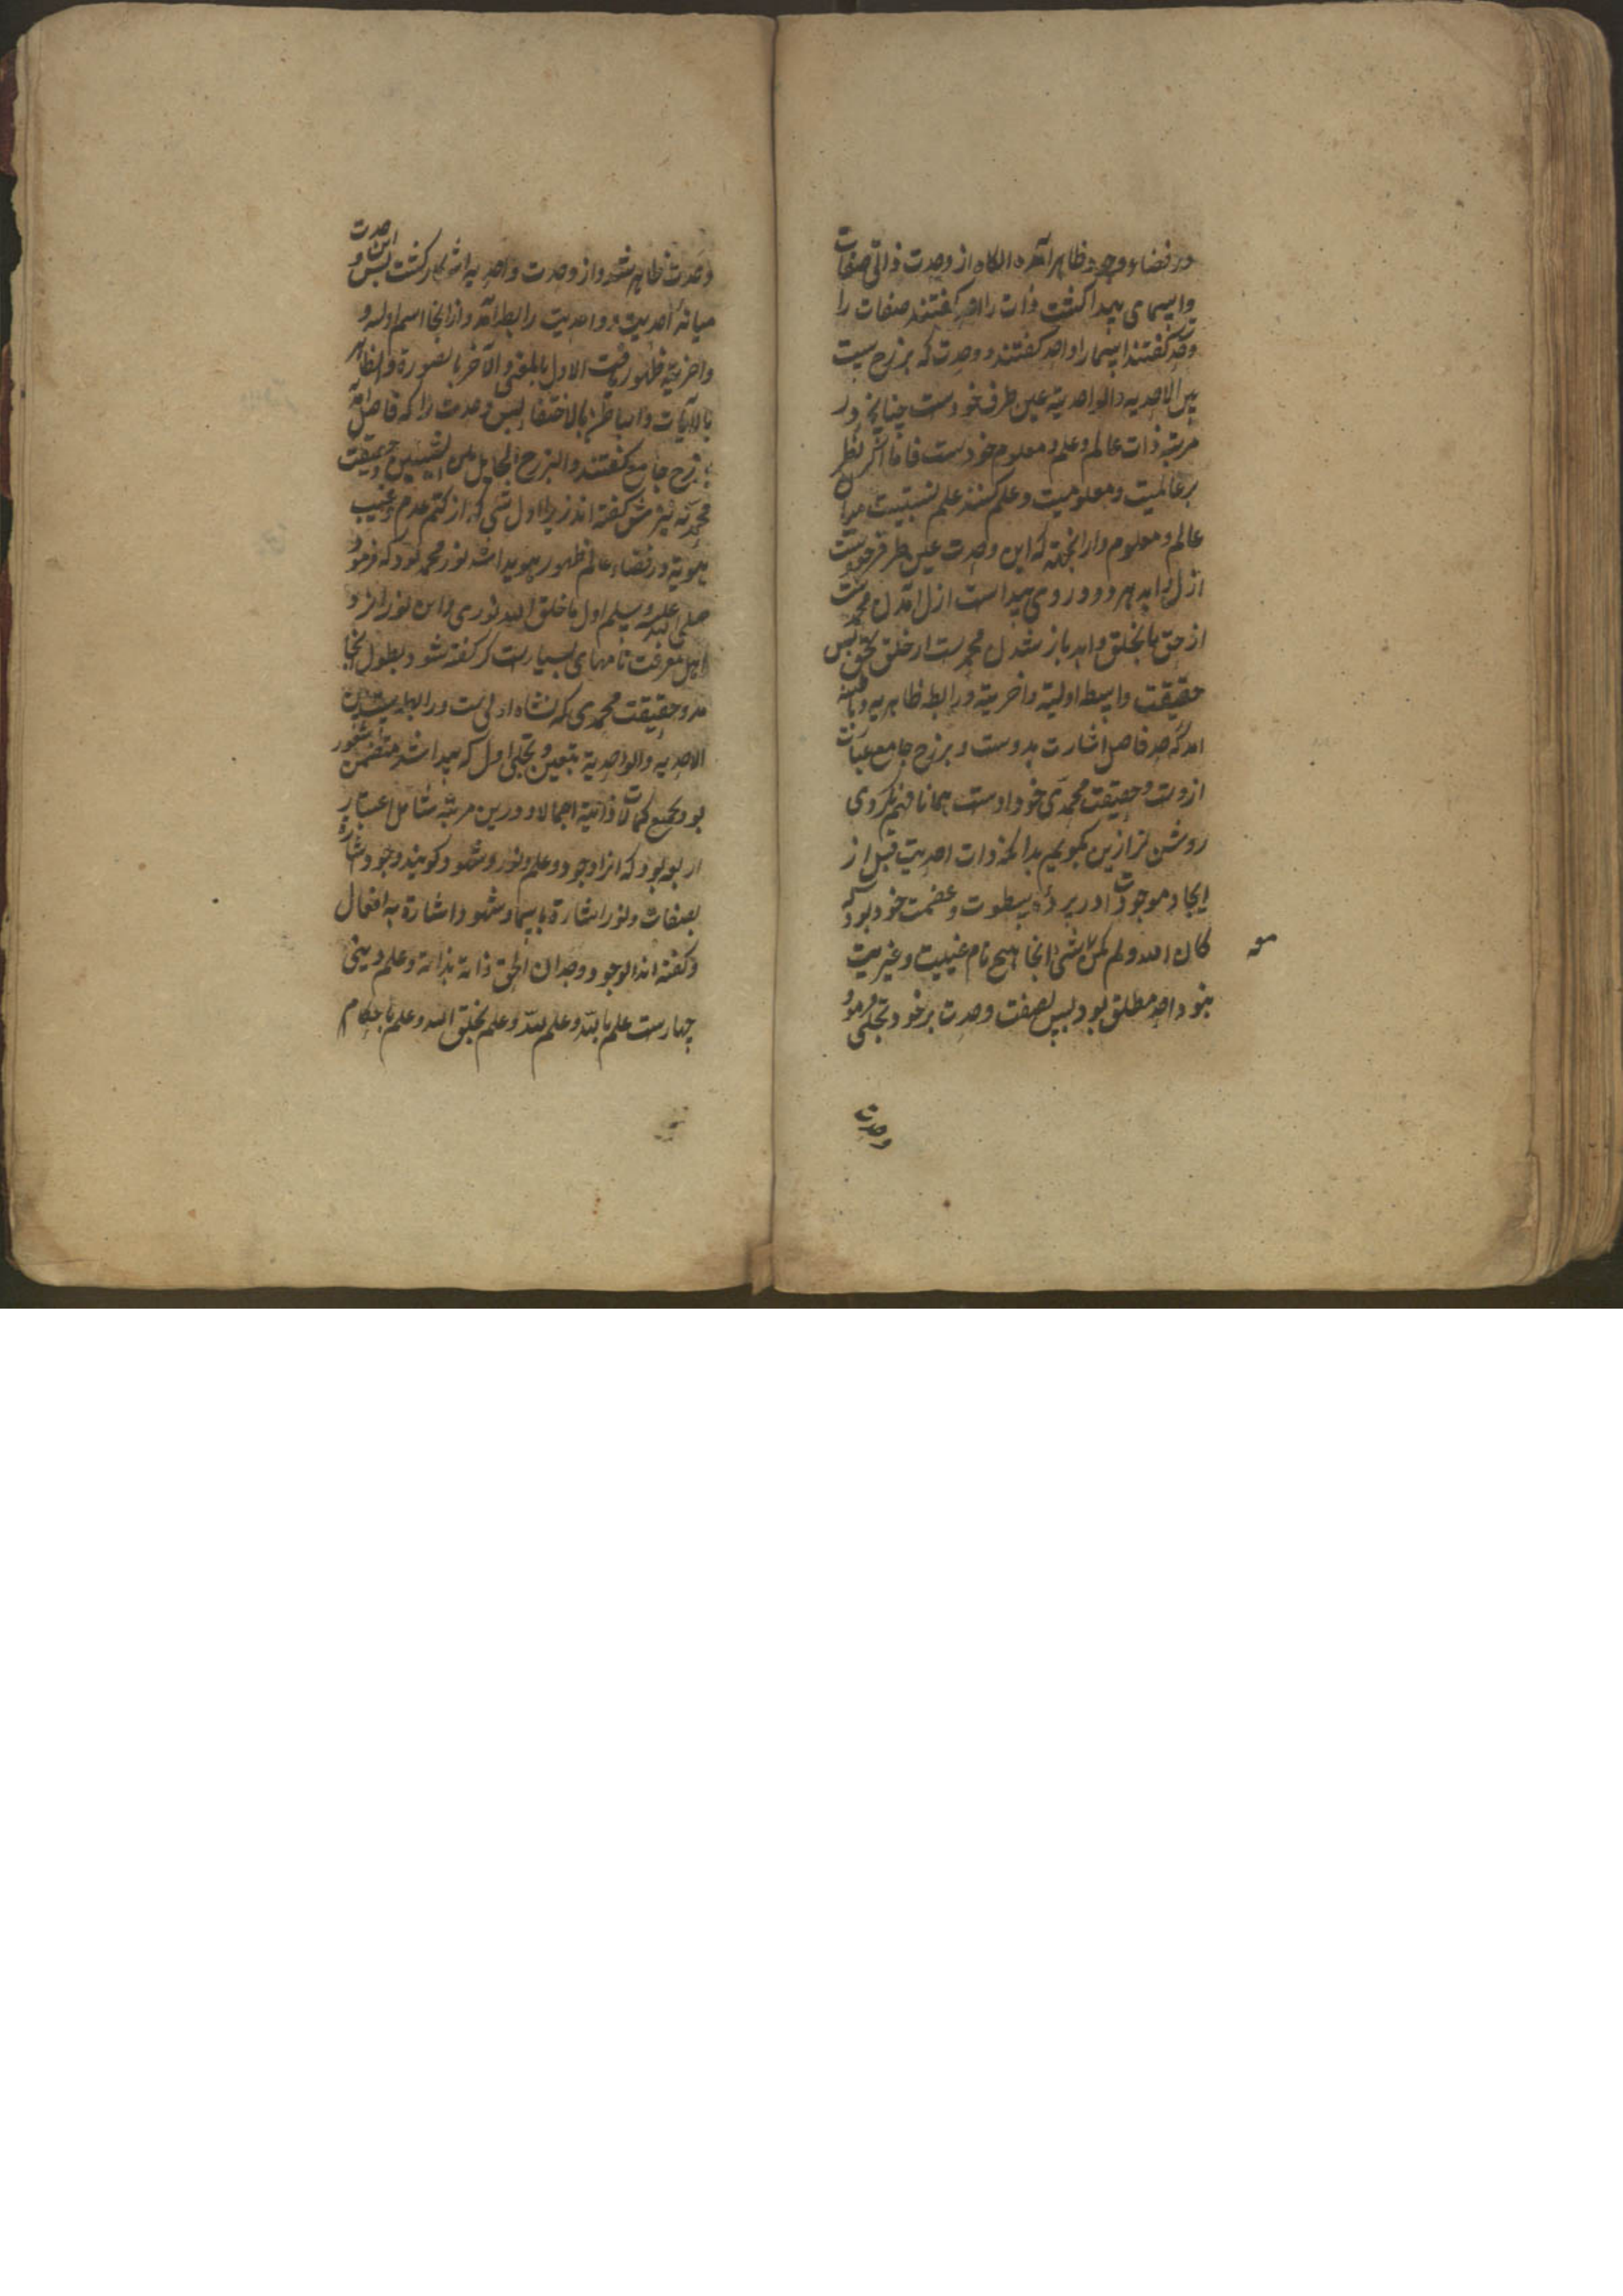 در فضاء وجود ظاهر آمد انگاه از وحدت ذاتی صفات
واسمای پیدا گشت ذات را احد گفتند صفات را
وحدت گفتند اسما را واحد گفتند و وحدت که برزخ سیت
بین الاحدیه والواحدیة عین طرف خودست چنانچه در
مرتبه ذات عالم وعلم و معلوم خودست فاما اگر نظر
بر عالمیت و معلومیت وعلم کنند علم نسبتیست میان
عالم و معلوم وازانجهة که این وحدت عین هر طرف خودست
ازل و ابد هر دو در وی پیداست ازل امدن محمدست
از حق بخلق وابد باز شدن محمدست از خلق بحق پس
حقیقت واسطه اولیة واخریة ورابطه ظاهریه وباطنیه
امد که حد فاصل اشارت بدوست و برزخ جامع عبارت
ازوست وحقیقت محمدی خود اوست همانا فهم نکردی
روشن تر ازین بگویم بدانکه ذات احدیت قبل از
ایجاد موجودات در پرده سطوت وعظمت خود بود که
کان الله ولم یکن شیء انجا هیچ نام عینیت وغیریت
نبود احد مطلق بود پس بصفت وحدت بر خود تجلی فرمود
وحدت
وحدت ظاهر شد و از وحدت واحدیه اشکار گشت پس این وحدت
میانهٔ احدیت و واحدیت رابط آمد و ازانجا اسم اولیة و
واخریة ظهور یافت الاول بالمعنی والآخر بالصورة والظاهر
بالآیات والباطن بالاختفا پس وحدت را که فاصل آمد
برزخ جامع گفتند والبرزخ الحایل بین الشیئین وحقیقت
محمدیه نیزش گفته اند زیرا اول شی که از کتم عدم وغیب
هویة در فضاء عالم ظهور هویدا شد نور محمد بود که فرمود
صلی الله علیه وسلم اول ما خلق الله نوری واین نور را نزد
اهل معرفت نامهای بسیارست گر گفته شود بطول انجامد
وحقیقت محمدی که نشاه اولی ست و رابطه بین
الاحدیه والواحدیة بتعین وتجلی اول که پیدا شد متضمن شعور
بود بجمیع کمالات ذاتیة اجمالا و درین مرتبه شامل اعتبار
اربعه بود که انرا وجود و علم ونور وشهود گویند وجود اشارة
بصفات ونور اشارة باسما وشهود اشارة به افعال
وگفته اند الوجود وجدان الحق ذاته بذاته وعلم دینی
چهارست علم بالله وعلم لله وعلم بخلق الله وعلم باحکام